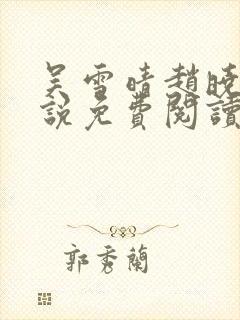 吴雪晴趙曉
說免費閱讀
郭秀蘭